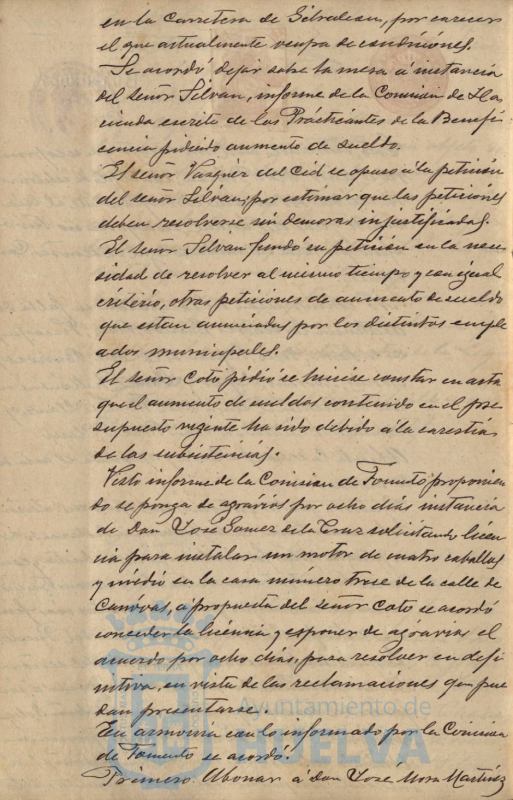 en la Carretera de Gibraleon, por carecer
el que actualmente ocupa de condiciones.
Se acordó dejar sobre la mesa á instancia
del señor Silvan, informe de la Comision de Ha-
cienda escrito de los Prácticantes de la Benefi-
cencia pidiendo aumento de sueldo.
El señor Vazquez del Cid se opuso á la petición
del señor Silvan, por estimar que las peticiones
deben resolverse sin demoras injustificadas.
El señor Silvan fundó su peticion en la nece-
sidad de resolver al mismo tiempo y con igual
criterio, otras peticiones de aumento de sueldo
que estan anunciadas por los distintos emple-
ados municipales.
El señor Coto pidió se hiciese constar en acta
que el aumento de sueldos contenido en el pre-
supuesto vigente ha sido debido á la carestia
de las subsistencias.
Visto informe de la Comision de Fomento proponien-
do se ponga de agravios por ocho dias instancia
de Don José Gomez de la Cruz solicitando licen-
cia para instalar un motor de cuatro caballos
y medio en la casa número trece de la calle de
Canóvas, á propuesta del señor Coto se acordó
conceder la licencia y esponer de agravios el
acuerdo por ocho dias, para resolver en defi-
nitiva, en vista de las reclamaciones que pue-
dan presentarse.
En armonia con lo informado por la Comision
de Fomento se acordó:
Primero. Abonar á Don José Mora Martinez
Ayuntamiento de
HUELVA